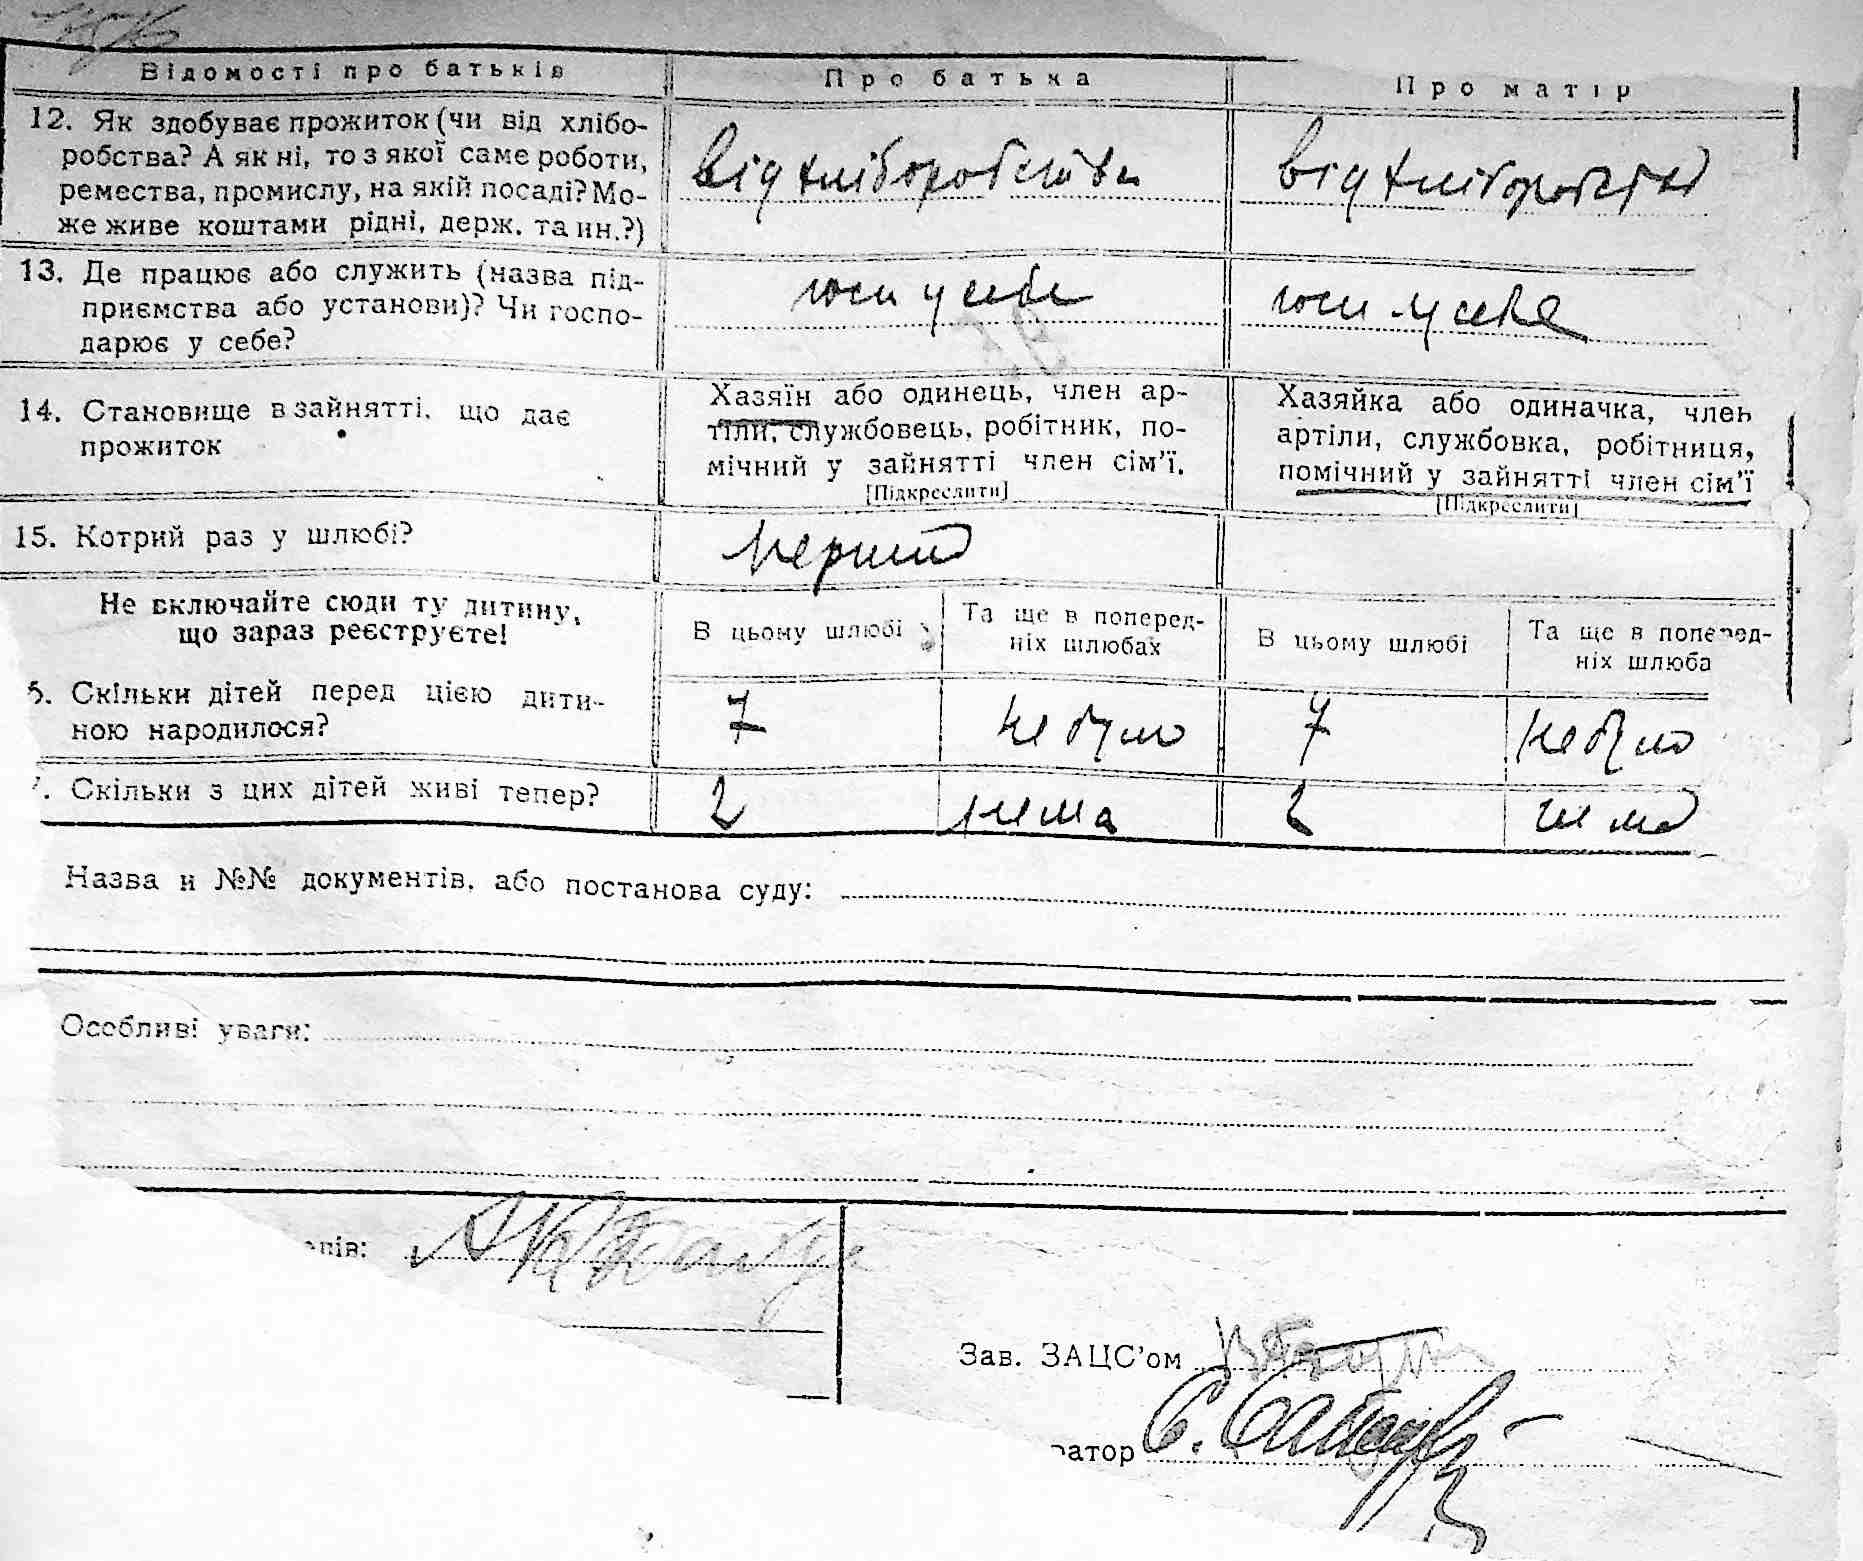 Відомості про батьків
Про батька
Про матір
12. Як здобуває прожиток (чи від хлібо-
робства? А як ні, то з якої саме роботи,
ремества, промислу, на якій посаді? Мо-
же живе коштами рідні, держ. та ин.?)
від хліборобства
від хліборобства
13. Де працює або служить (назва під-
приємства або установи)? Чи госпо-
дарює у себе?
у себе
у себе
14. Становище в зайнятті, що дає
прожиток
Хазяїн або одинець, член ар-
тіли, службовець, робітник, по-
мічний у зайнятті член сім'ї.
[Підкреслити]
Хазяйка або одиначка, член
артіли, службовка, робітниця,
помічний у зайнятті член сім'ї
[Підкреслити]
15. Котрий раз у шлюбі?
перший
Не включайте сюди ту дитину,
що зараз реєструєте!
В цьому шлюбі
Та ще в поперед-
ніх шлюбах
В цьому шлюбі
Та ще в поперед-
ніх шлюба
6. Скільки дітей перед цією дити-
ною народилося?
7
не було
7
не було
7. Скільки з цих дітей живі тепер?
2
нема
2
нема
Назва и №№ документів, або постанова суду:
Особливі уваги:
Зав. ЗАЦС'ом
ратор